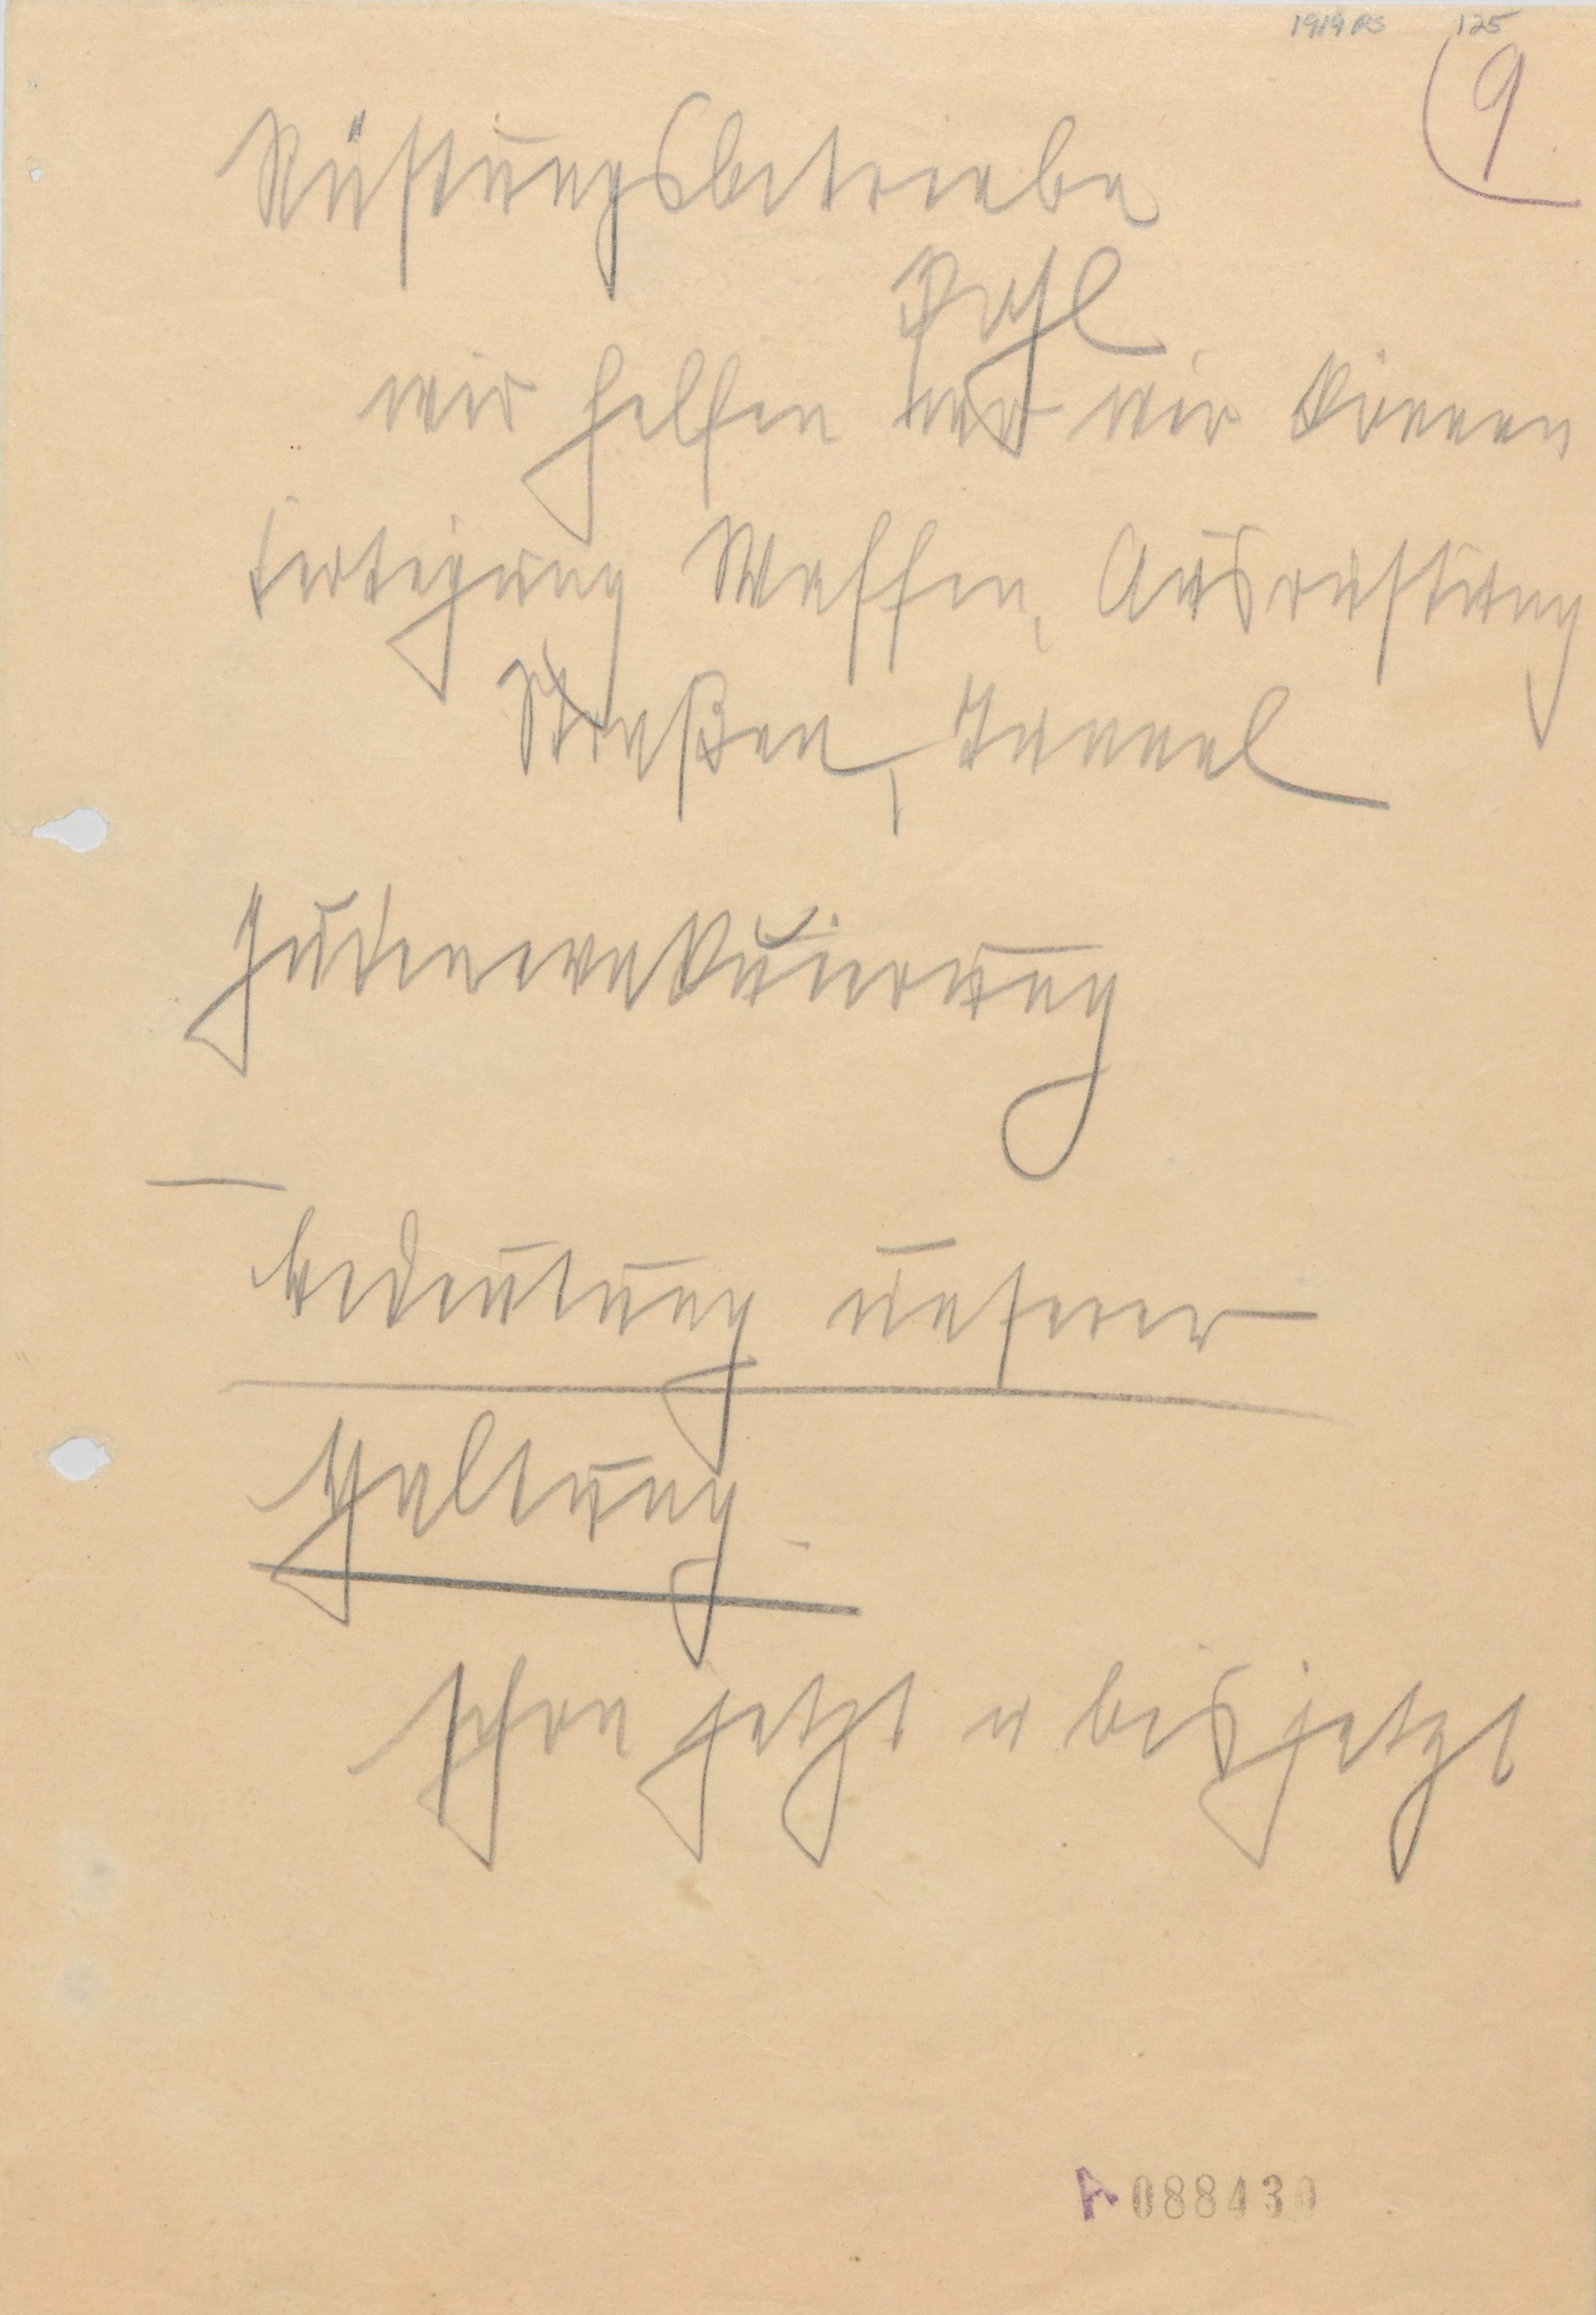 1919 PS 125
9
Rüstungsbetriebe
Pohl
wir helfen wo wir können
Fertigung Waffen, Ausrüstung
Straßen, Tunnel
Judenevakuierung
—
Bedeutung unserer
Haltung.
schon jetzt u bis jetzt
A 088430